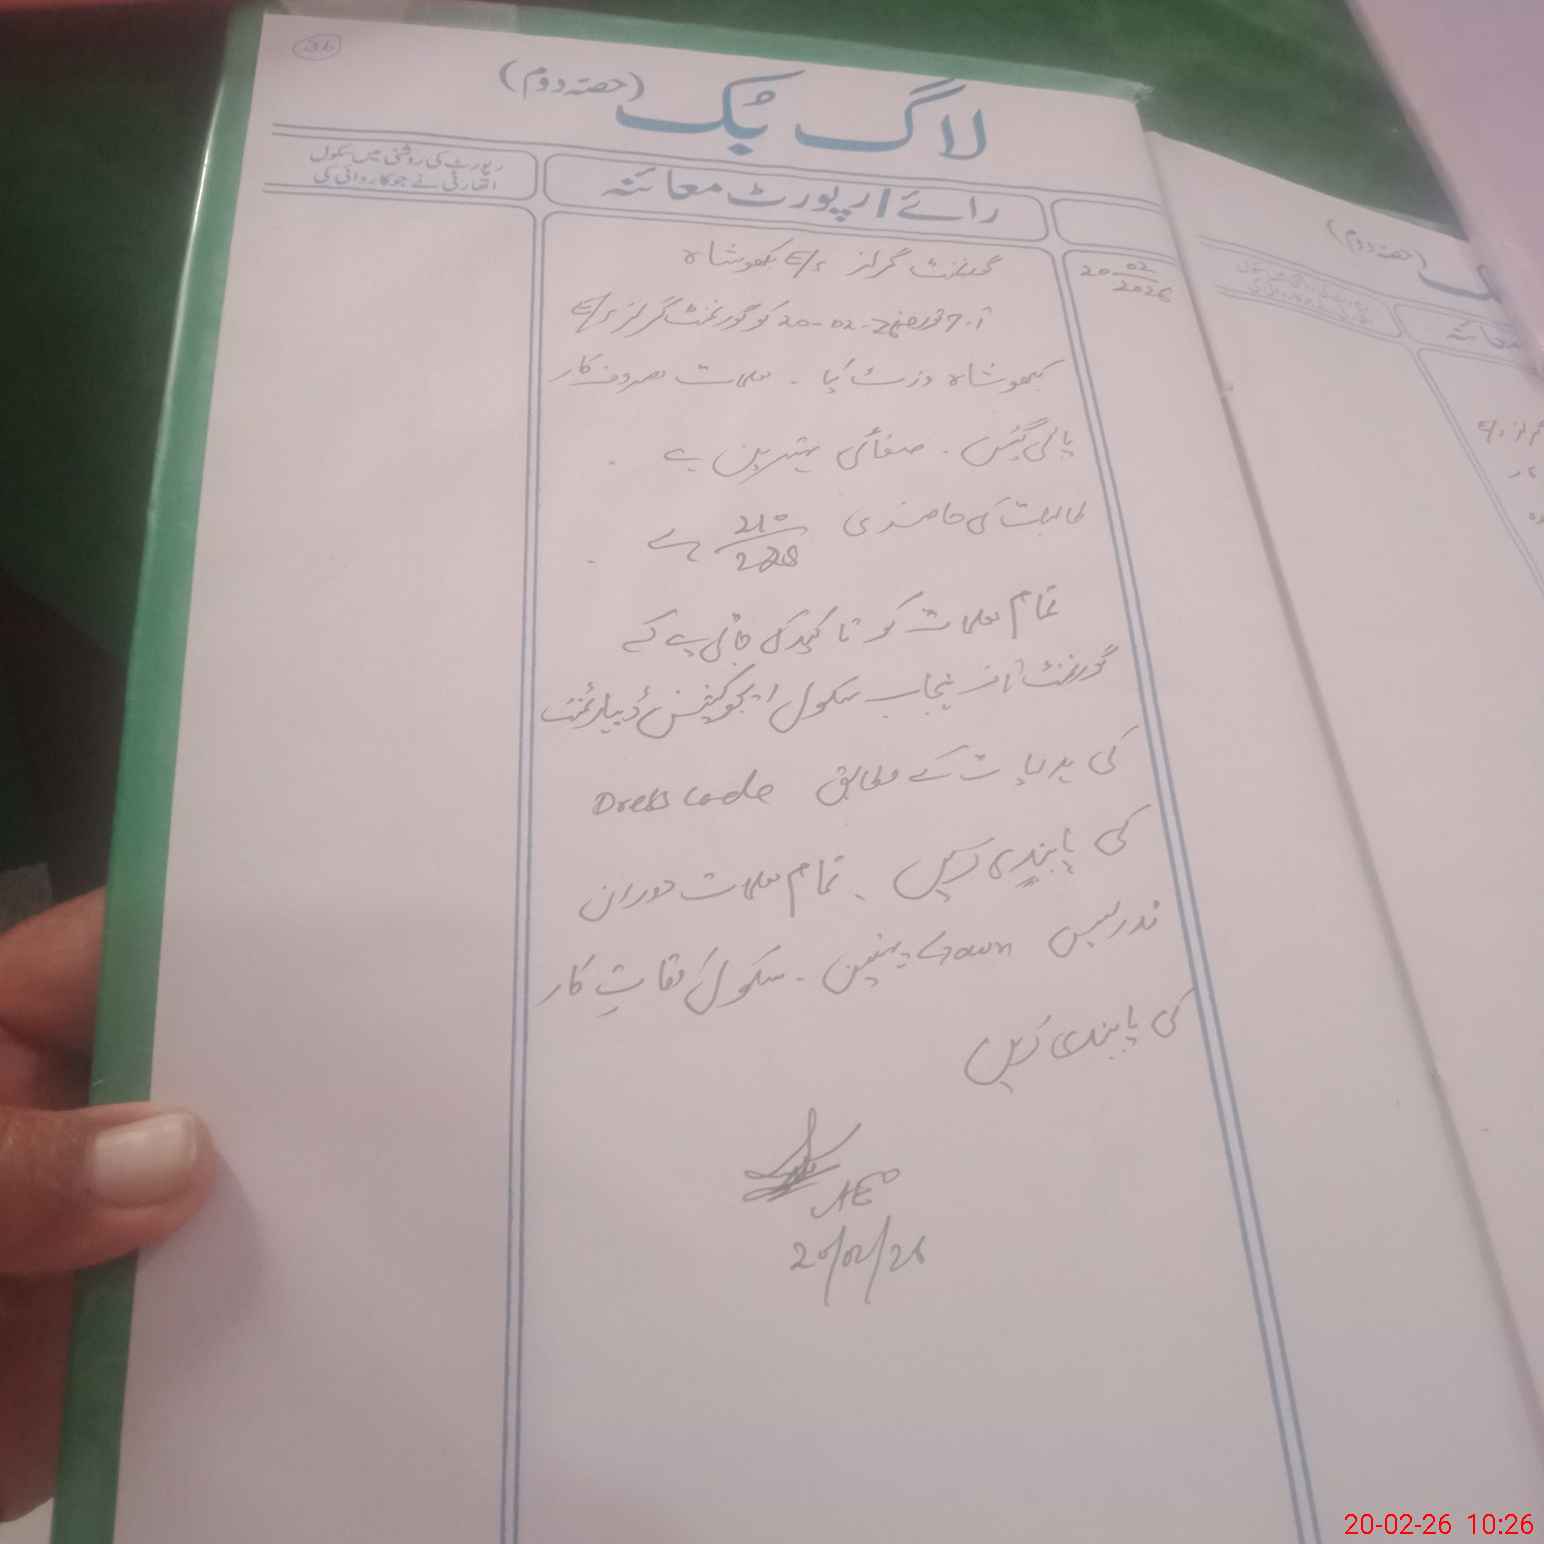 36
لاگ بُک (حصّہ دوم)
رائے / رپورٹ معائنہ
رپورٹ کی روشنی میں سکول
اتھارٹی نے جو کاروائی کی
20-02-2026
گورنمنٹ گرلز E/S کھوشاہ
آج مورخہ 26-02-20 کو گورنمنٹ گرلز E/S
کھوشاہ وزٹ کیا ۔ معلمات مصروف کار
پائی گئیں ۔ صفائی بہترین ہے ۔
طالبات کی حاضری 210/228 ہے ۔
تمام معلمات کو تاکید کی جاتی ہے کہ
گورنمنٹ آف پنجاب سکول ایجوکیشن ڈیپارٹمنٹ
کی ہدایات کے مطابق Dress code
کی پابندی کریں ۔ تمام معلمات دوران
تدریس Gown پہنیں ۔ سکول اوقاتِ کار
کی پابندی کریں
AEO
20/02/26
(حصّہ دوم)
20-02-26 10:26